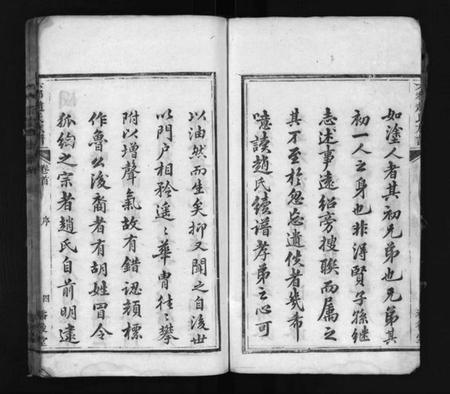 如塗人者其初兄弟也兄弟其
初一人之身也非得賢子孫繼
志述事遠紹旁搜聯而屬之
其不至於忽忘遺佚者幾希
噫讀趙氏續譜孝弟之心可
以油然而生矣抑又聞之自後世
以門戶相矜遥遥華胄往往攀
附以增聲氣故有錯認顏標
作魯公後裔者有胡姓冒令
狐約之宗者趙氏自前明逮
卷首
序
四